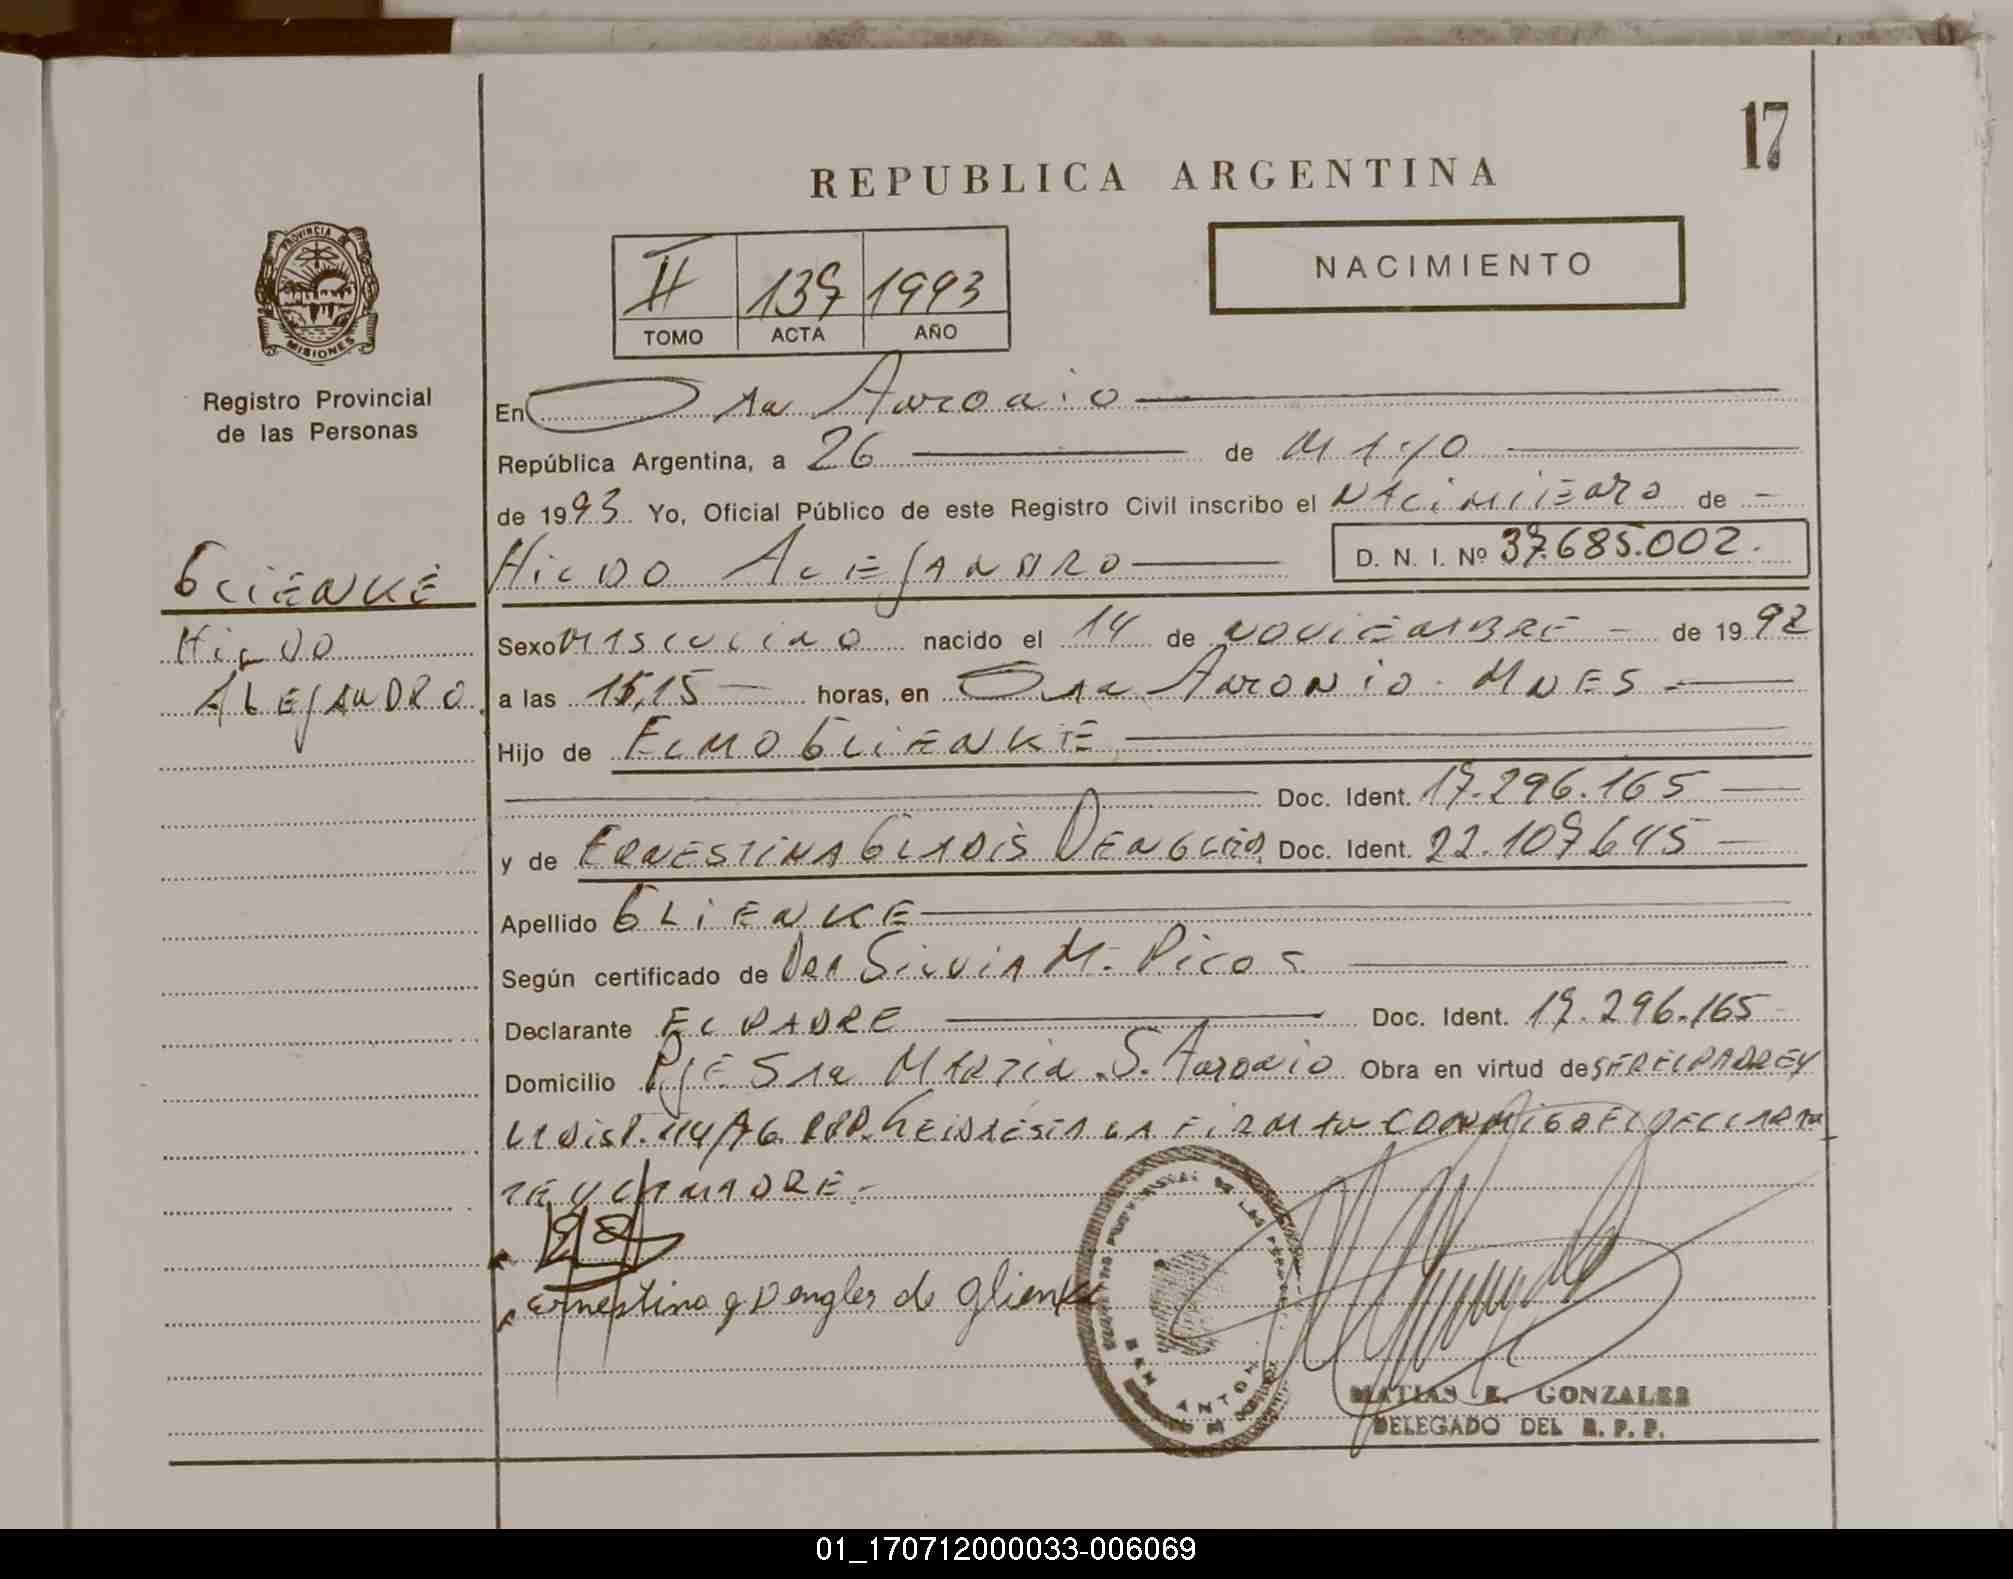 17
REPUBLICA ARGENTINA
PROVINCIA DE
MISIONES
Registro Provincial
de las Personas
II 137 1993
TOMO ACTA AÑO
NACIMIENTO
En San Antonio
República Argentina, a 26 de MAYO
de 1993 Yo, Oficial Público de este Registro Civil inscribo el NACIMIENTO de
HILDO ALEJANDRO D. N. I. Nº 37.685.002.
GLIENKE
HILDO
ALEJANDRO.
Sexo MASCULINO nacido el 14 de NOVIEMBRE de 1992
a las 15,15 horas, en San Antonio - MNES
Hijo de ELMO GLIENKE
Doc. Ident. 17.296.165
y de ERNESTINA GLADIS DENGLER Doc. Ident. 22.107.645
Apellido GLIENKE
Según certificado de Dra SILVIA M. Picos
Declarante EL PADRE Doc. Ident. 17.296.165
Domicilio PJE San MARTIN S. Antonio Obra en virtud de SER EL PADRE Y
LA DISP. 114/76 RPP. LEIDA ESTA LA FIRMAN CONMIGO EL DECLARAN
TE Y LA MADRE.-
Ernestina g Dengler de glienke
SAN ANTONIO
MATIAS E. GONZALES
DELEGADO DEL R. P. P.
01_170712000033-006069